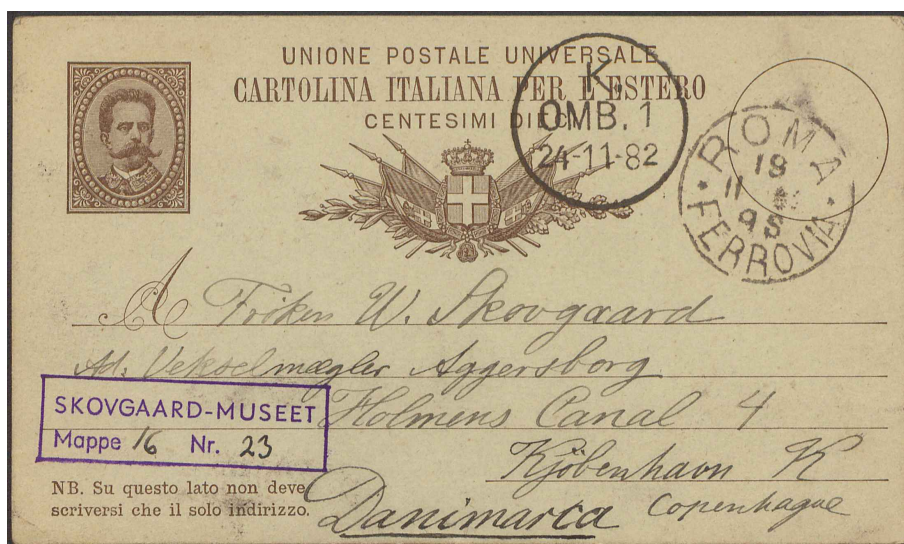 UNIONE POSTALE UNIVERSALE
CARTOLINA ITALIANA PER L'ESTERO
CENTESIMI DIECI
K.
OMB. 1
24-11-82
ROMA
18
11
95
FERROVIA
A Fröken W. Skovgaard
Ad. Vekselmægler Aggersborg
Holmens Canal 4
Kjöbenhavn K
Danimarca Copenhague
SKOVGAARD-MUSEET
Mappe 16 Nr. 23
NB. Su questo lato non deve
scriversi che il solo indirizzo.